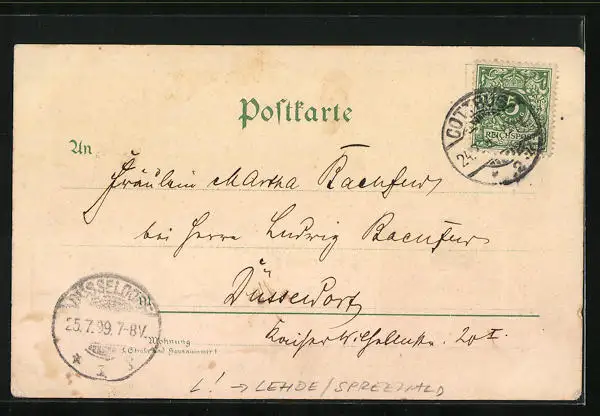 Postkarte
COTTBUS
5
REICHSPOST
24.
An
Fräulein Martha Bachfur
bei Herrn Ludwig Bachfur
Düsseldorf
Kaiser Wilhelmstr. 20 I
Wohnung
(Straße und Hausnummer)
DÜSSELDORF
25.7.99.7-8V.
L! → LEHDE/SPREEWALD